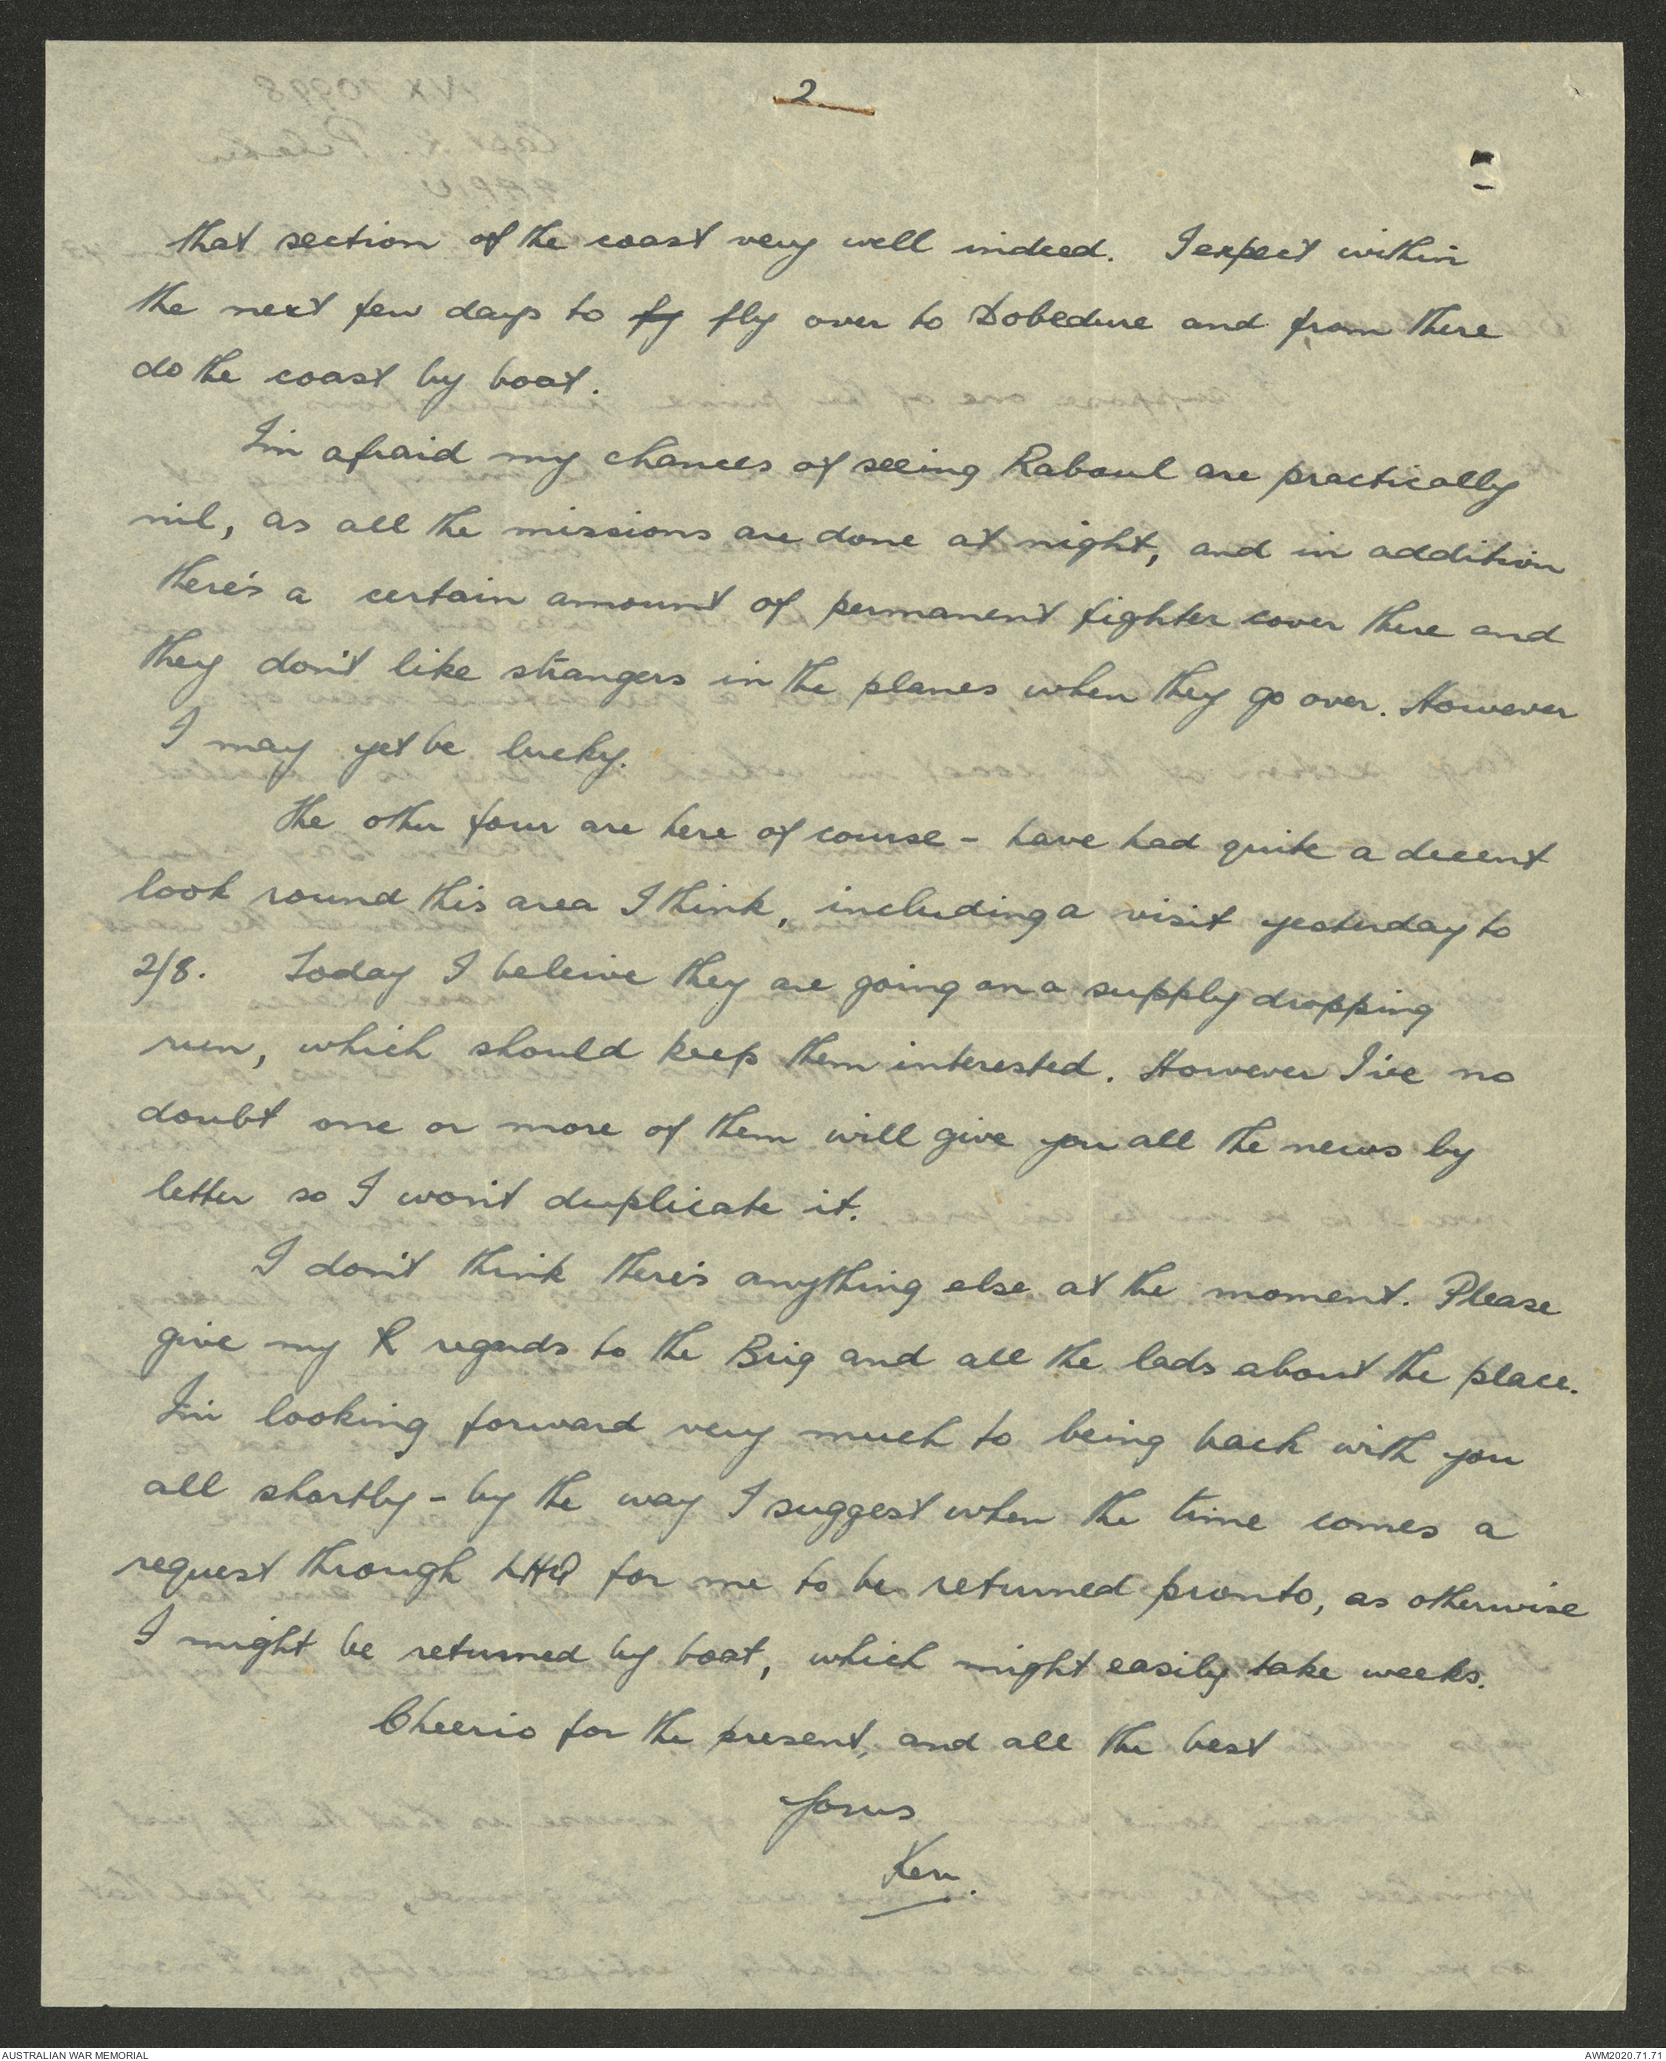 2
that section of the coast very well indeed. I expect within
the next few days to fy fly over to Dobedure and from there
do the coast by boat.
I'm afraid my chances of seeing Rabaul are practically
nil, as all the missions are done at night, and in addition
there's a certain amount of permanent fighter cover there and
they don't like strangers in the planes when they go over. However
I may yet be lucky.
The other four are here of course - have had quite a decent
look round this area I think, including a visit yesterday to
2/8. Today I beleive they are going on a supply dropping
run, which should keep them interested. However I've no
doubt one or more of them will give you all the news by
letter so I won't duplicate it.
I don't think there's anything else at the moment. Please
give my R regards to the Brig and all the lads about the place.
I'm looking forward very much to being back with you
all shortly - by the way I suggest when the time comes a
request through LHQ for me to be returned pronto, as otherwise
I might be returned by boat, which might easily take weeks.
Cheerio for the present, and all the best
Yours
Ken.
AUSTRALIAN WAR MEMORIAL
AWM2020.71.71